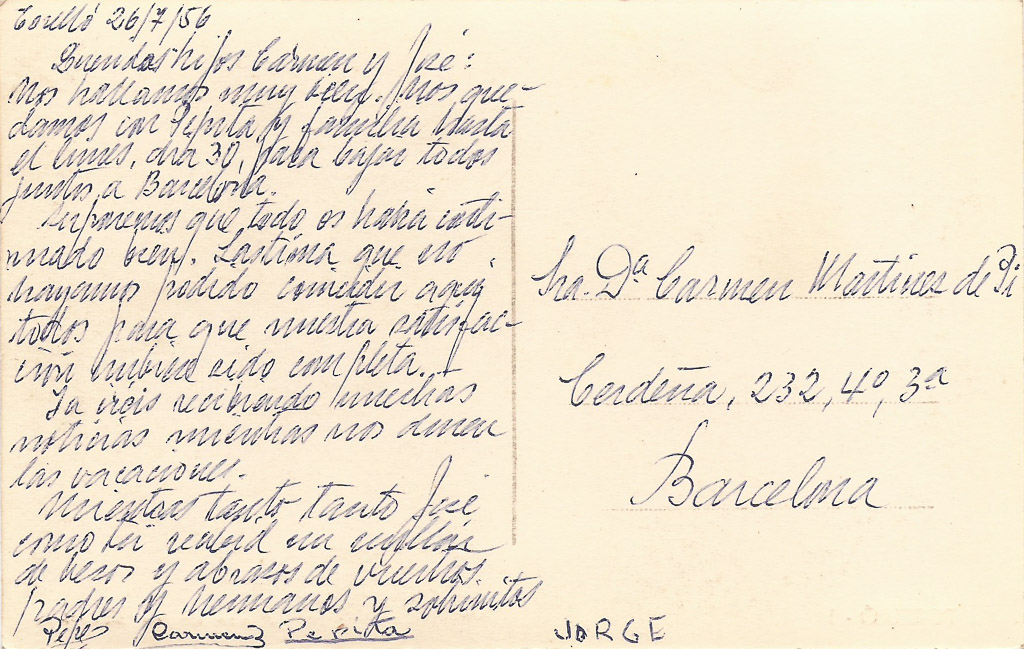 Torelló 26/7/56
Queridos hijos Carmen y José:
Nos hallamos muy bien. Nos que-
damos con Pepita y familia hasta
el lunes, dia 30, para bajar todos
juntos a Barcelona.
Suponemos que todo os habrá conti-
nuado bien. Lastima que no
hayamos podido coincidir aquí
todos para que nuestra satisfac-
ción hubiese sido completa.
Ya ireis recibiendo nuestras
noticias mientras nos duren
las vacaciones.
Mientras tanto tanto José
como tú recibid un millón
de besos y abrazos de vuestros
padres y hermanos y sobrinitos
Pepe Carmen Pepita JORGE
Sra. Dª Carmen Martinez de Pi
Cerdeña, 232, 4º, 3ª
Barcelona